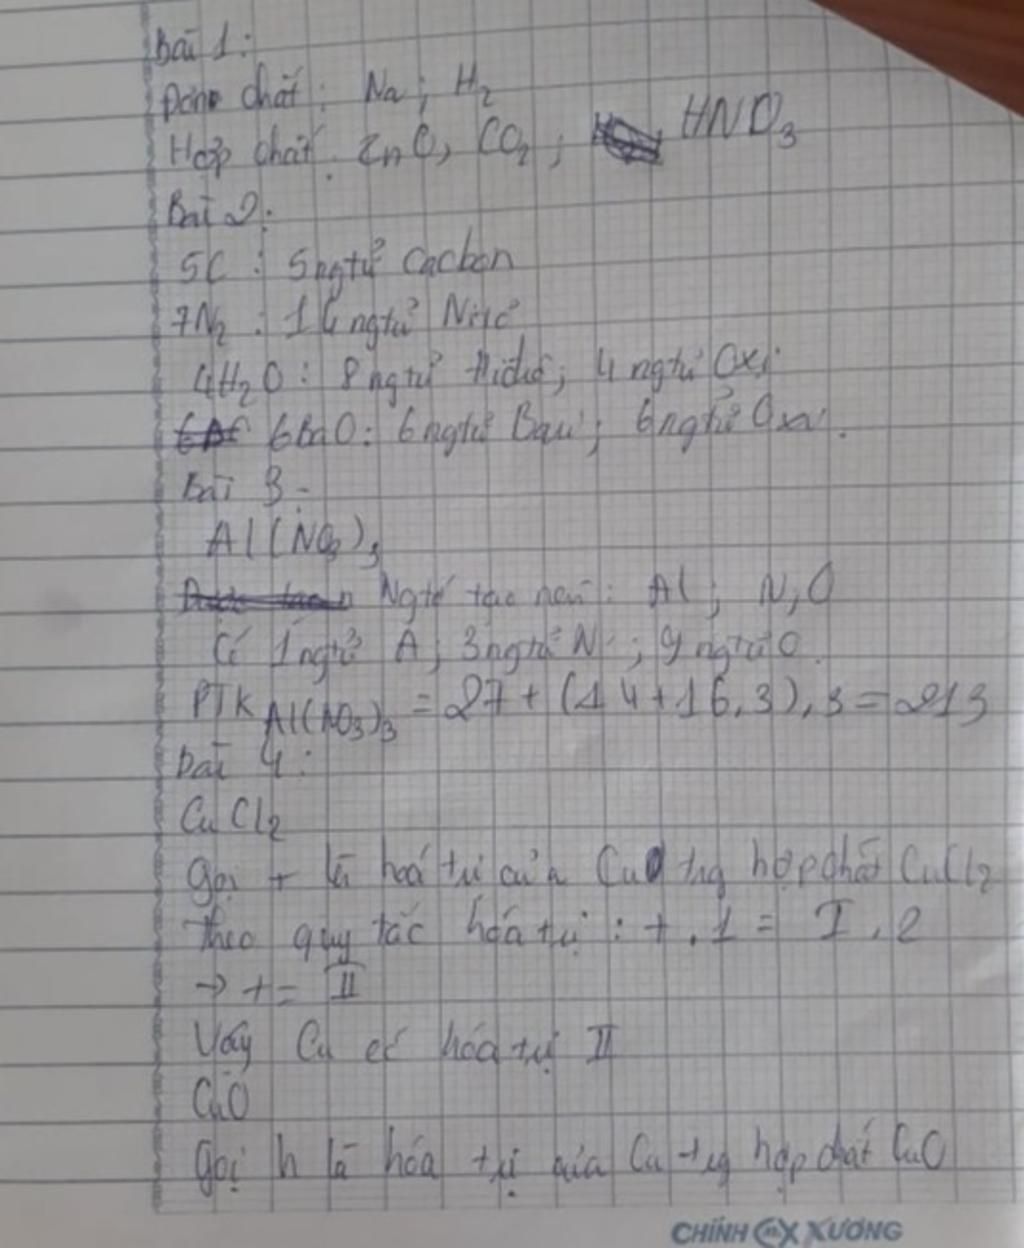 Bài 1:
Đơn chất: Na; H₂
Hợp chất: ZnO, CO₂; HNO₃
Bài 2:
5C: 5 ngtử Cacbon
7N₂: 14 ngtử Nitơ
4H₂O: 8 ngtử Hiđrô; 4 ngtử Oxi
6BaO: 6 ngtử Bari; 6 ngtử Oxi.
Bài 3:
Al(NO₃)₃
Ngtố tạo nên: Al; N, O
Có 1 ngtử A; 3 ngtử N; 9 ngtử O.
PTK Al(NO₃)₃ = 27 + (14 + 16.3).3 = 213
Bài 4:
CuCl₂
Gọi t là hoá trị của Cu tng hợp chất CuCl₂
theo quy tắc hóa trị: t.1 = I.2
→ t = II
Vậy Cu có hóa trị II
CuO
Gọi h là hóa trị của Cu trg hợp chất CuO
CHÍNH XƯƠNG